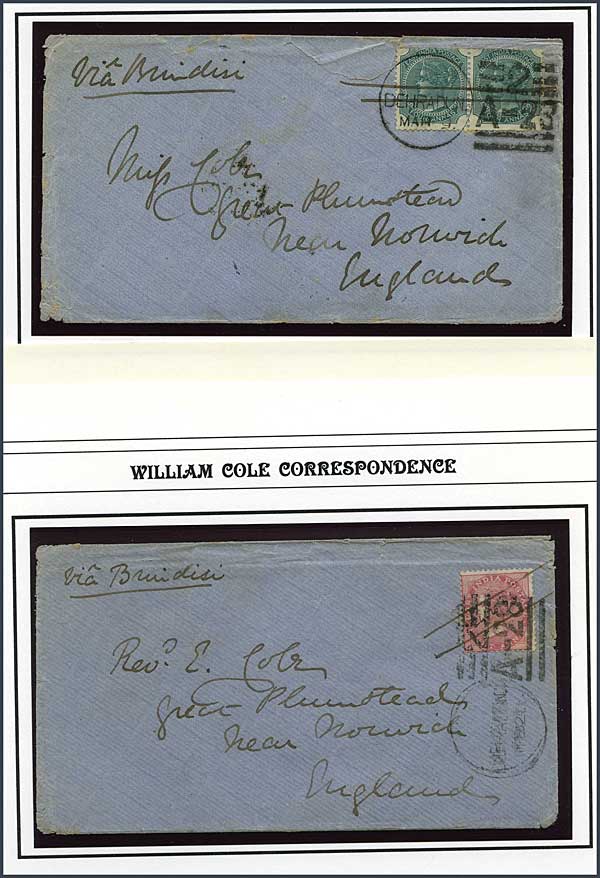 Viâ Brindisi
EAST INDIA POSTAGE
DEHRA
MAR
2
A-23
Miss Cole
Great Plumstead
Near Norwich
England
WILLIAM COLE CORRESPONDENCE
viâ Brindisi
INDIA
Revd. E. Cole
Great Plumstead
Near Norwich
England